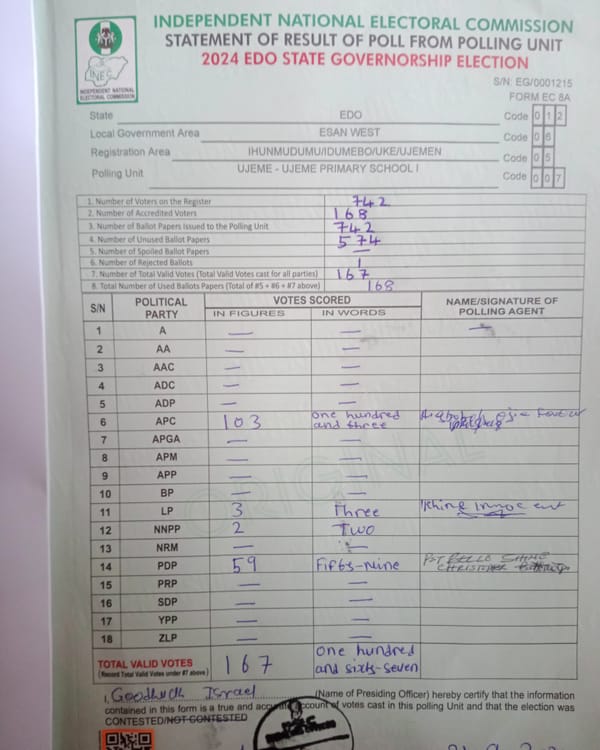 INDEPENDENT NATIONAL ELECTORAL COMMISSION
STATEMENT OF RESULT OF POLL FROM POLLING UNIT
2024 EDO STATE GOVERNORSHIP ELECTION
INEC
INDEPENDENT NATIONAL ELECTORAL COMMISSION
S/N: EG/0001215
FORM EC 8A
State EDO Code 0 1 2
Local Government Area ESAN WEST Code 0 6
Registration Area IHUNMUDUMU/IDUMEBO/UKE/UJEMEN Code 0 5
Polling Unit UJEME - UJEME PRIMARY SCHOOL I Code 0 0 7
1. Number of Voters on the Register 742
2. Number of Accredited Voters 168
3. Number of Ballot Papers Issued to the Polling Unit 742
4. Number of Unused Ballot Papers 574
5. Number of Spoiled Ballot Papers —
6. Number of Rejected Ballots 1
7. Number of Total Valid Votes (Total Valid Votes cast for all parties) 167
8. Total Number of Used Ballots Papers (Total of #5 + #6 + #7 above) 168
S/N POLITICAL PARTY VOTES SCORED NAME/SIGNATURE OF POLLING AGENT
IN FIGURES IN WORDS
1 A — — —
2 AA — —
3 AAC — —
4 ADC — —
5 ADP — —
6 APC 103 one hundred and three
7 APGA — —
8 APM — —
9 APP — —
10 BP — —
11 LP 3 Three Innocent
12 NNPP 2 Two
13 NRM — —
14 PDP 59 Fifty-Nine BELLO CHRISTOPHER
15 PRP — —
16 SDP — —
17 YPP — —
18 ZLP — —
ORIGINAL
TOTAL VALID VOTES 167 one hundred and sixty-seven
(Record Total Valid Votes under #7 above)
I, Goodluck Israel (Name of Presiding Officer) hereby certify that the information
contained in this form is a true and accurate account of votes cast in this polling Unit and that the election was
CONTESTED/NOT CONTESTED